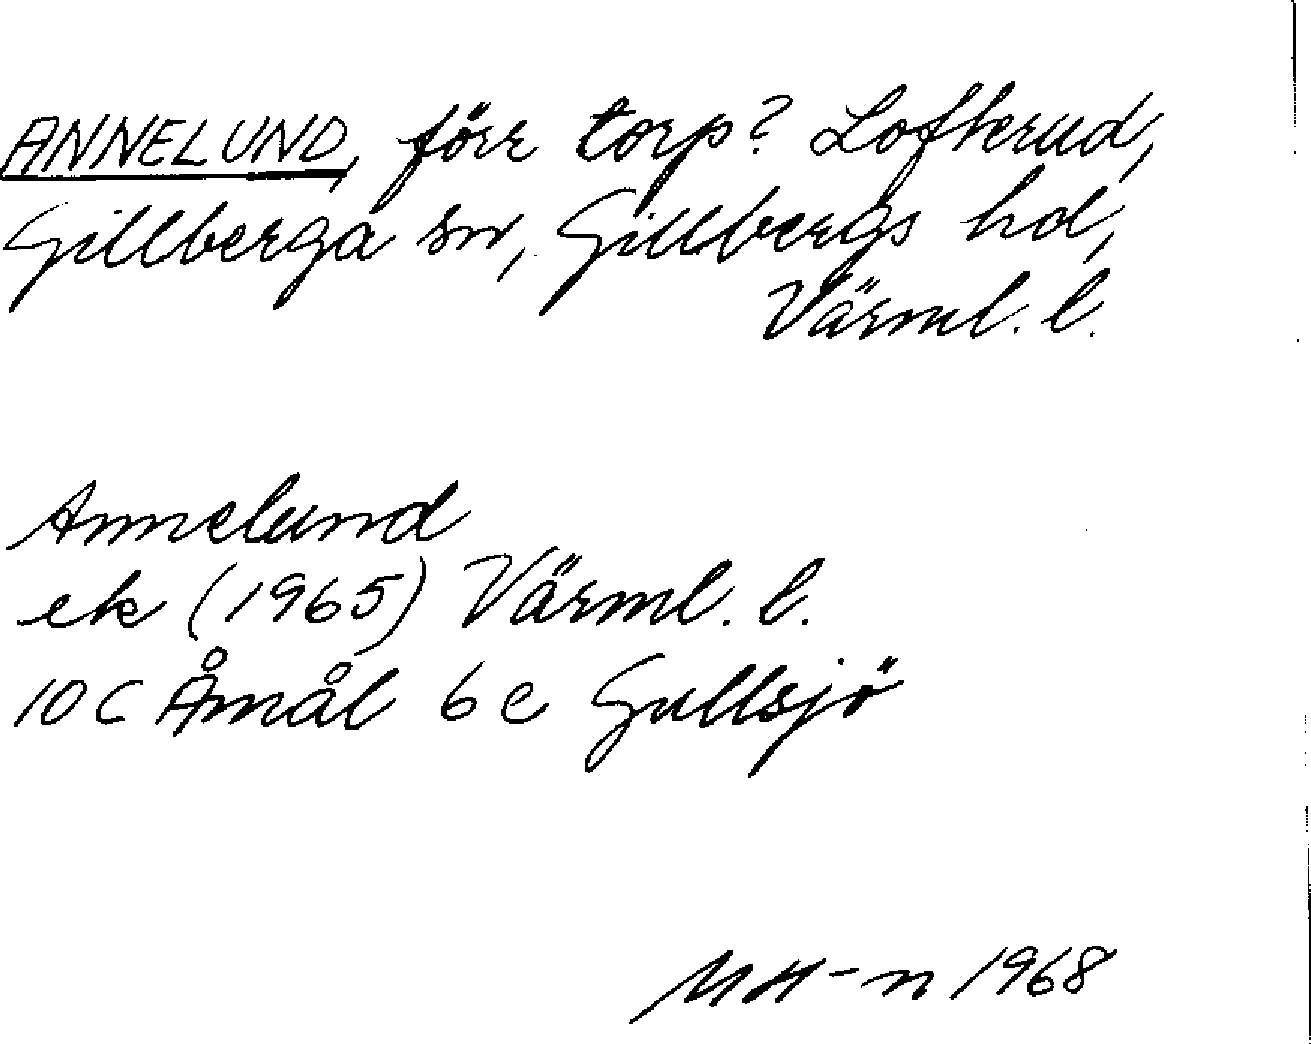 ANNELUND, förr torp? Lofterud,
Gillberga sn, Gillbergs hd,
Värml. l.
Annelund
ek (1965) Värml. l.
10 C Åmål 6 e Gullsjö
MH-n 1968